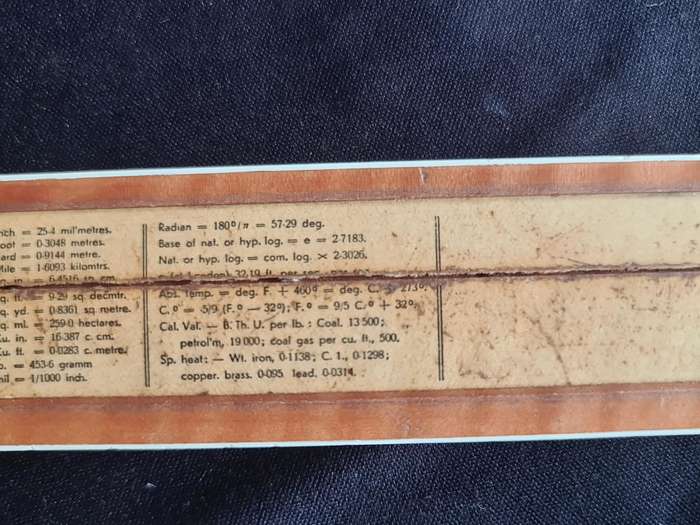 nch = 25·4 mil'metres.
oot = 0·3048 metres.
ard = 0·9144 metre.
Mile = 1·6093 kilomtrs.
q. in. = 6·4516 sq. cm.
q. ft. = 9·29 sq. decmtr.
q. yd. = 0·8361 sq. metre.
q. ml. = 259·0 hectares.
u. in. = 16·387 c. cm.
u. ft. = 0·0283 c. metre.
b. = 453·6 gramm
mil = 1/1000 inch.
Radian = 180º/π = 57·29 deg.
Base of nat. or hyp. log. = e = 2·7183.
Nat. or hyp. log. = com. log. × 2·3026.
32·19 ft. per sec.
Abs. Temp. = deg. F. + 460º = deg. C. + 273º,
C.º = 5/9 (F.º — 32º); F.º = 9/5 C.º + 32º,
Cal. Val. — B. Th. U. per lb.: Coal. 13 500;
petrol'm, 19 000; coal gas per cu. ft., 500.
Sp. heat: — Wt. iron, 0·1138; C. 1., 0·1298;
copper. brass. 0·095 lead. 0·0314.